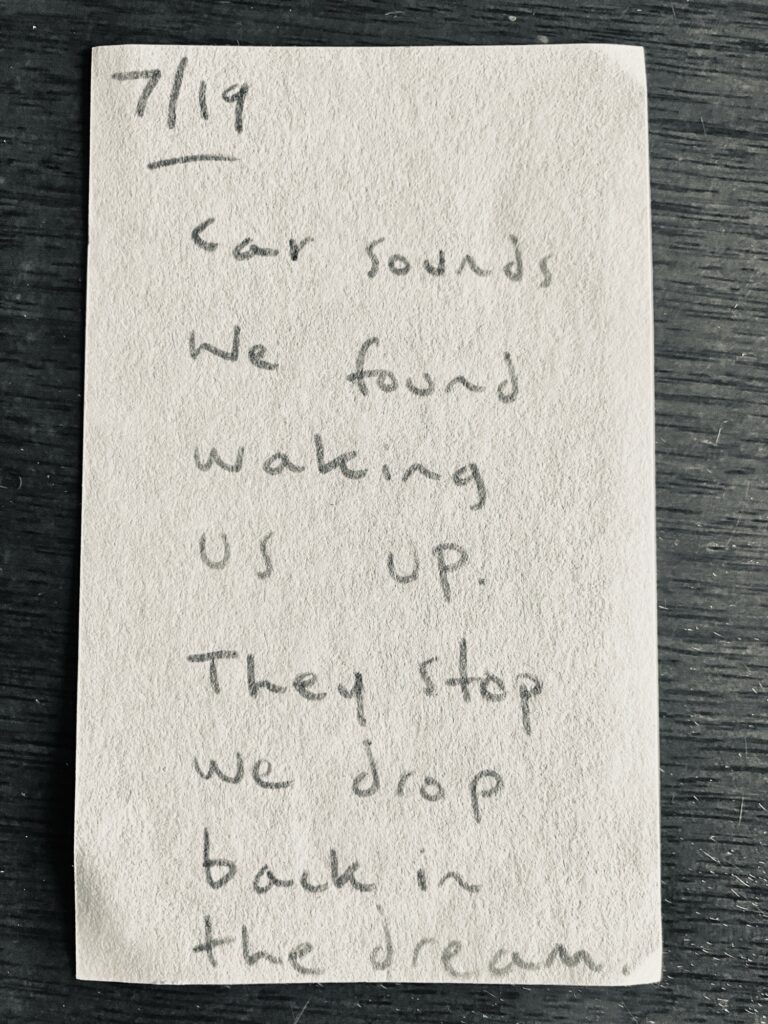 7/19
Car sounds
We found
waking
us up.
They stop
we drop
back in
the dream.